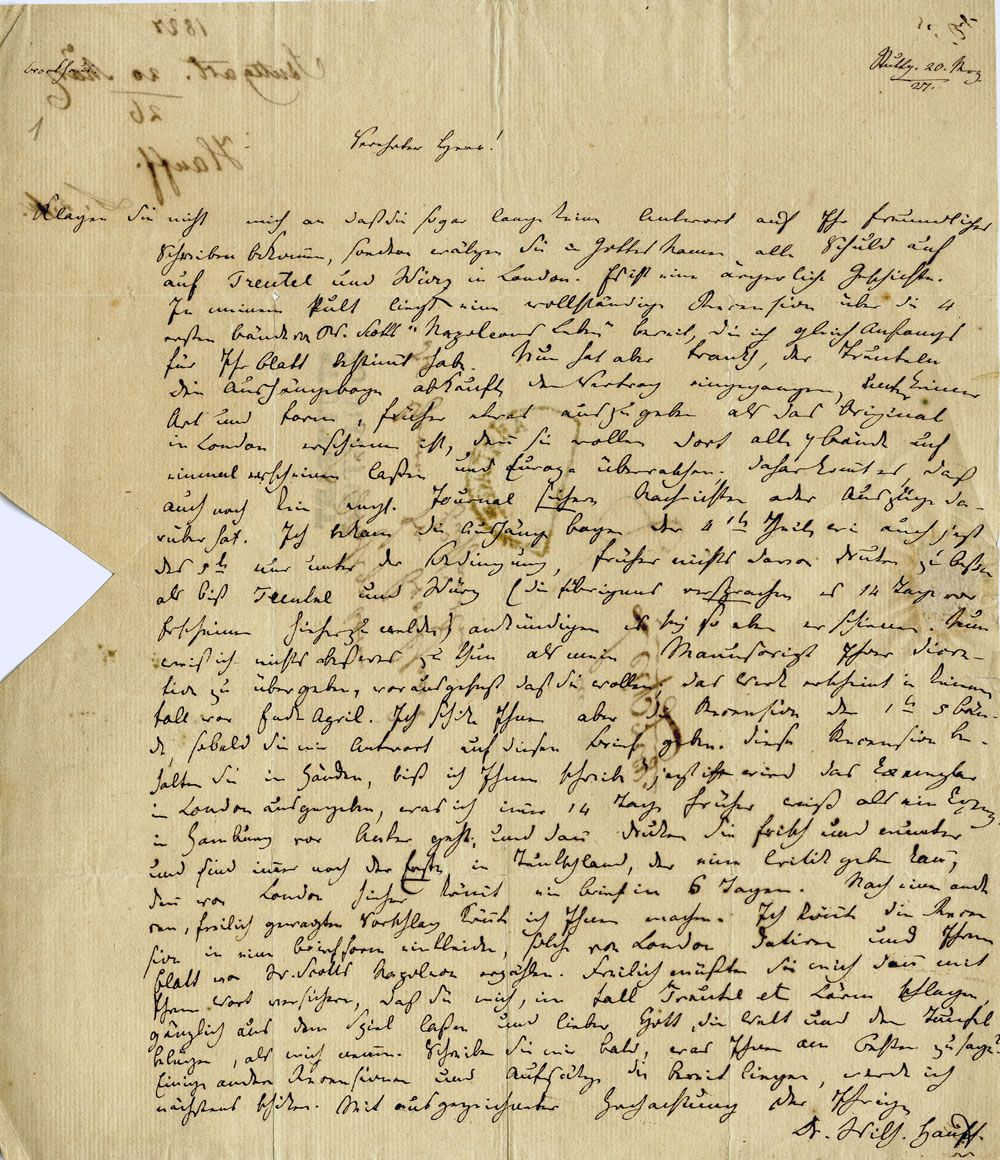 Brockhaus.
Stuttg. 20. Mrz
27.
1
Verehrter Herr!
Klagen Sie nicht mich an daß Sie so gar lange keine Antwort auf Ihr freundliches
Schreiben bekomen, sondern wälzen Sie in Gottes Namen alle Schuld auf
auf Treutel und Würz in London. Es ist eine ärgerliche Geschichte.
In meinem Pult liegt eine vollständige Recension über die 4
ersten Bände von W. Scotts "Napoleons Leben" bereit, die ich gleich Anfangs
für Ihr Blatt bestimt habe. Nun hat aber Franckh, der Treuteln
die Aushängebogen abkaufte den Vertrag eingegangen, unter keiner
Art und Form, früher etwas auszugeben als das Original
in London erschienen ist, den sie wollen dort alle 7 Bände auf
einmal erscheinen laßen und Europa überraschen. Daher komt es, daß
auch noch kein engl. Journal sichere Nachrichten oder Auszüge da-
rüber hat. Ich bekam die Aushänge bogen der 4 Theile wie auch jezt
des 5t nur unter der Bedingung, früher nichts davon druken zu laßen
als biß Treutel und Würz (die übrigens versprachen es 14 Tage vor
Erscheinen hieher zu melden) ankündigen es sey so eben erschienen. Nun
weiß ich nichts beßeres zu thun als mein Manuscript Ihrer Discre-
tion zu übergeben, vorausgesezt daß Sie wollen; das Werk erscheint in keinem
Fall vor Ende April. Ich schike Ihnen aber die Recension der 1t 5 Bän-
de, sobald Sie mir Antwort auf diesen Brief geben. Diese Recension be-
halten Sie in Händen, biß ich Ihnen schreibe jezt wird das Exemplar
in London ausgegeben, was ich imer 14 Tage früher weiß als ein Exempl.
in Hamburg vor Anker geht, und dan druken Sie frisch und munter
und sind imer noch der Erste, in Teutschland, der eine Critik geben kan,
den von London hieher komt ein Brief in 6 Tagen. Noch einen ande
ren, freilich gewagten Vorschlag könte ich Ihnen machen. Ich könte die Recen
sion in eine Briefform einkleiden, solche von London datiren und Ihrem
Blatt von W. Scotts Napoleon erzählen. Freilich müßten Sie mich dan mit
Ihrem Wort versichern, daß Sie mich, im Fall Treutel et Lärm schlagen,
gänzlich aus dem Spiel laßen und lieber Gott, die Welt und den Teufel
belügen, als mich nenen. Schreiben Sie mir bald, was Ihnen am Besten zusagt.
Einige andere Recensionen und Aufsätze die bereit liegen, werde ich
nächstens schiken. Mit ausgezeichneter Hochachtung der Ihrige
Dr. Wilh. Hauff.